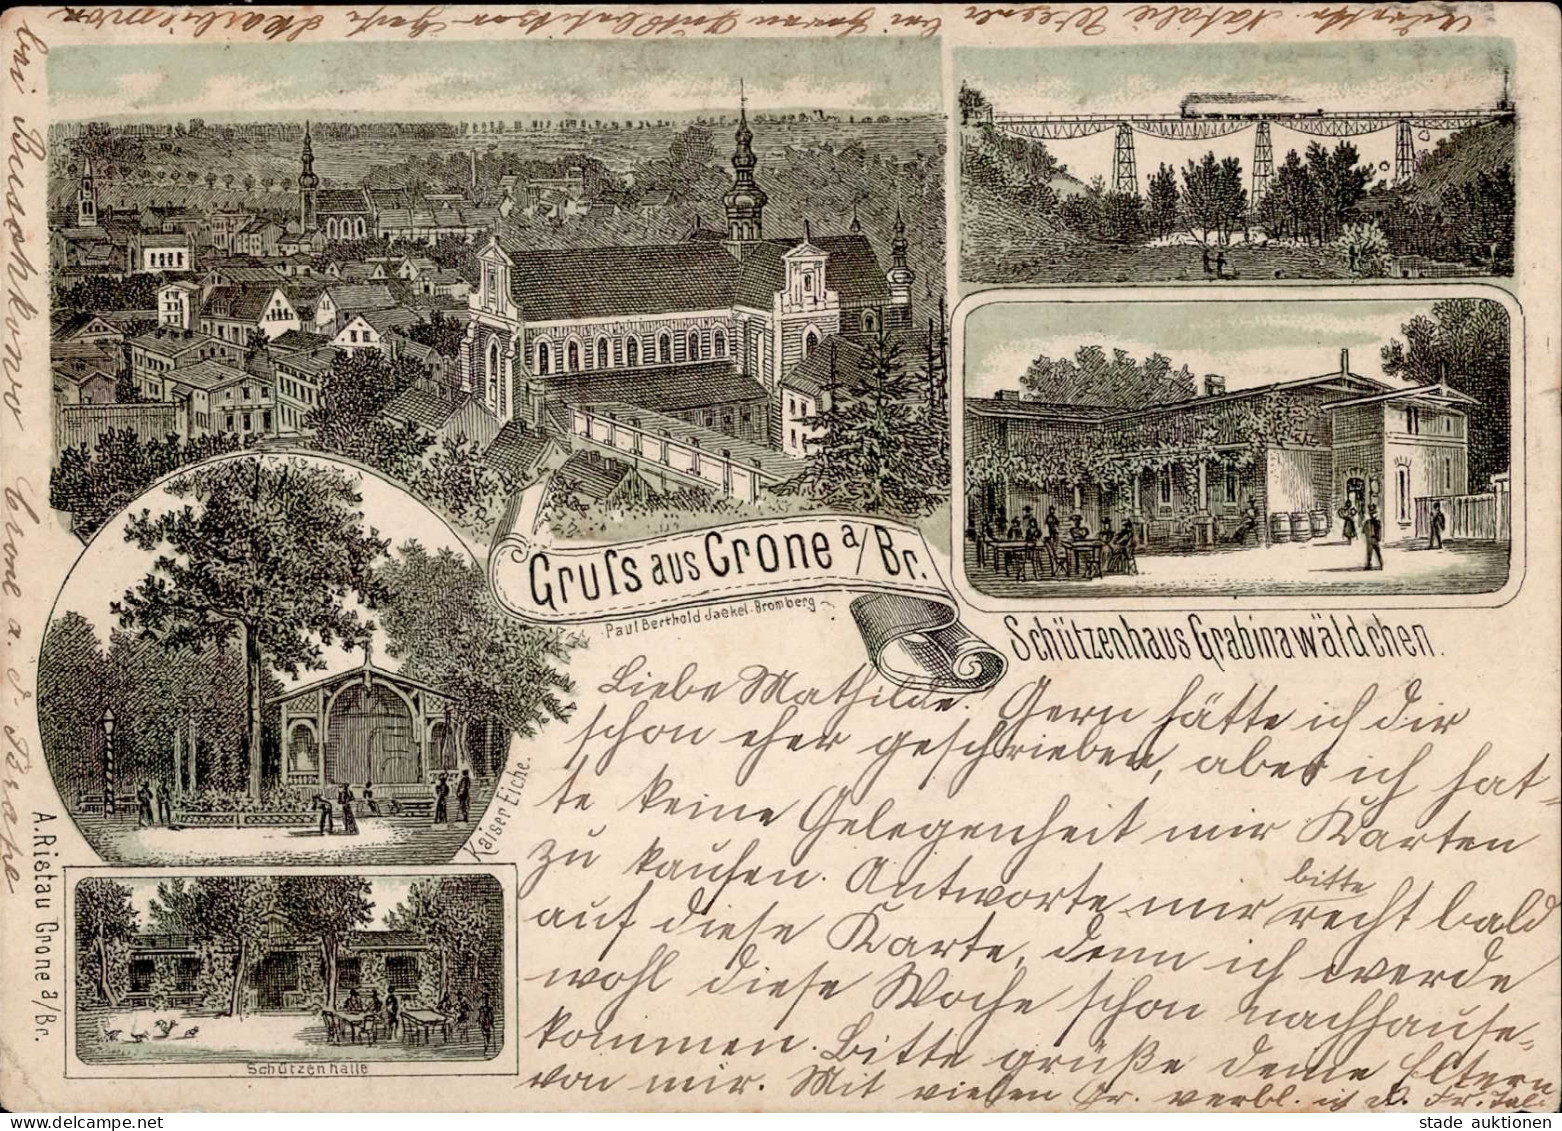 Gruſs aus Crone a/Br.
Paul Berthold Jaekel. Bromberg
Schützenhaus Grabinawäldchen.
Kaiser Eiche.
Schützenhalle
A. Ristau Crone a/Br.
Liebe Mathilde. Gern hätte ich dir
schon eher geschrieben, aber ich hat-
te keine Gelegenheit mir Karten
zu kaufen. Antworte mir bitte recht bald
auf diese Karte, denn ich werde
wohl diese Woche schon nachhause-
kommen. Bitte grüße deine Eltern
von mir. Mit vielen Gr. verbl. ich d. Fr.
bei Buschkowo Crone a. d Brahe
Natalie Wegner bei Herrn
stade auktionen